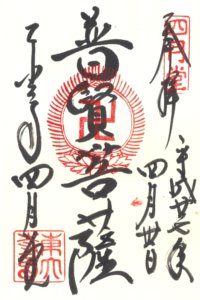 四月堂
奉拝
平成廿七年
四月卅日
普賢菩薩
東大寺 四月堂